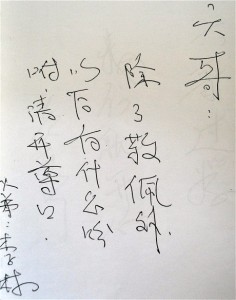 大哥：
除了敬佩外.
以后有什么吩
咐.请再尊口.
大弟：李敖